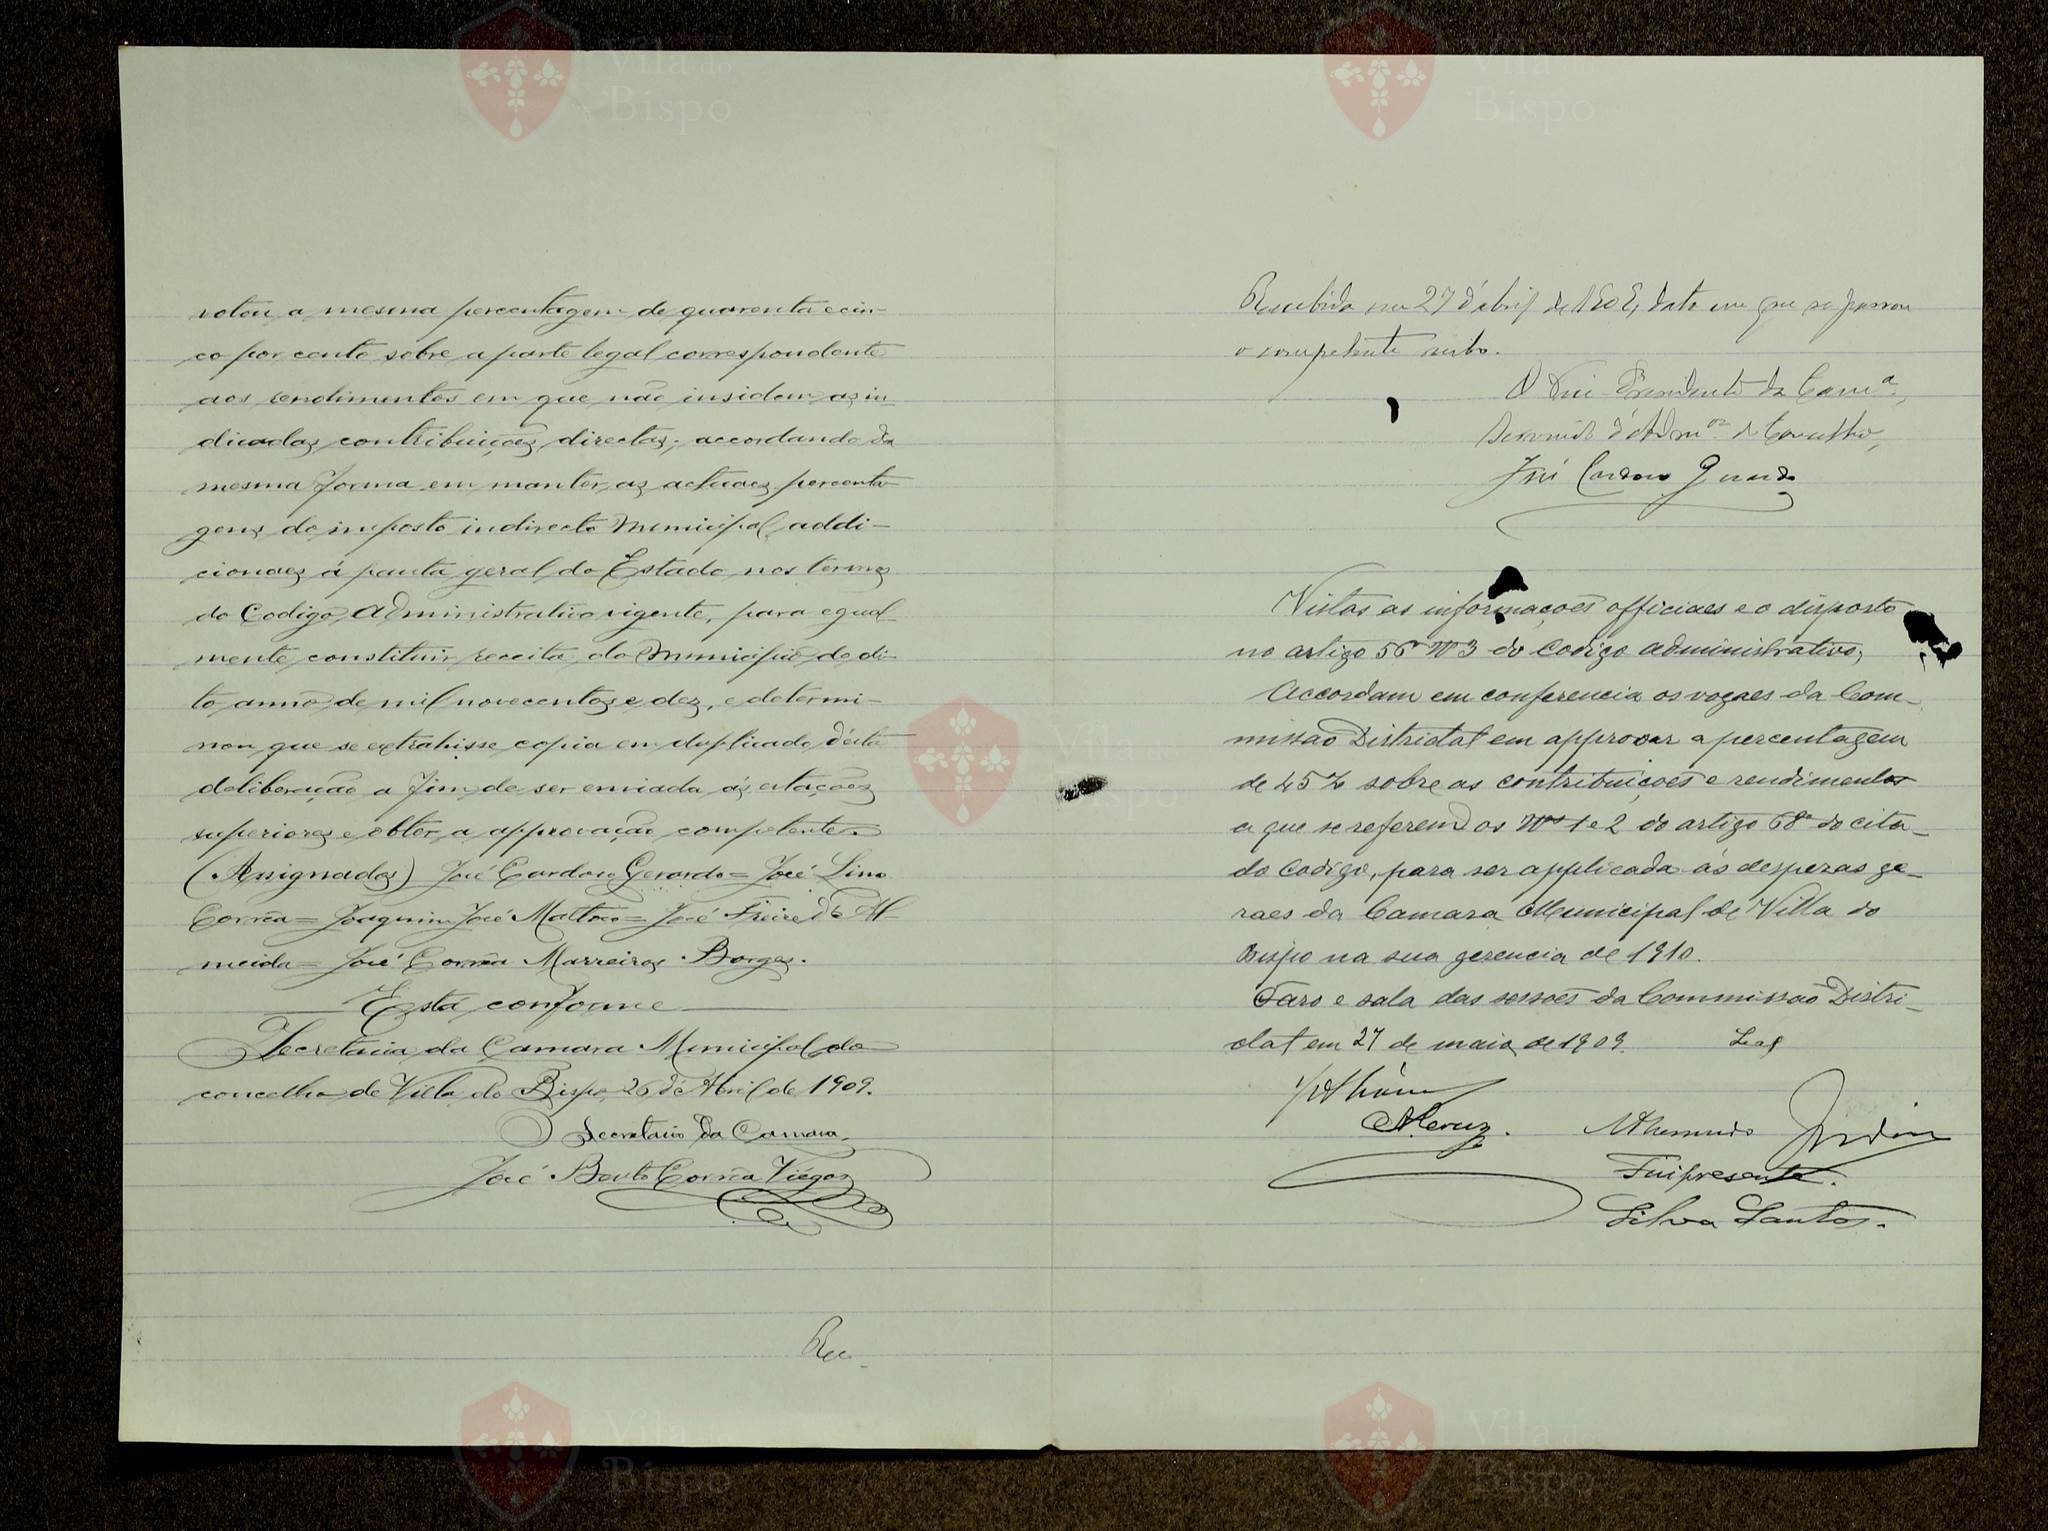 votou a mesma percentagem de quarenta e cin-
co por cento sobre a parte legal correspondente
aos rendimentos em que não insidem as in-
dicadas contribuições directas; accordando da
mesma forma em manter as actuaes percenta-
gens do imposto indirecto Municipal addi-
cionaes á pauta geral do Estado nos termos
do Codigo Administrativo vigente, para egual-
mente constituir receita do Municipio do di-
to anno de mil novecentos e dez, e determi-
nou que se extrahisse copia em duplicado d'esta
deliberação a fim de ser enviada ás estações
superiores e obter a approvação competente.
(Assignados) José Cardoso Gerardo = José Lino
Corrêa = Joaquim José Mattoso = José Freire d'Al
meida = José Corrêa Marreiros Borges.
Está conforme
Secretaria da Camara Municipal do
concelho de Villa do Bispo 26 de Abril de 1909.
O Secretario da Camara,
José Bento Corrêa Viégas
Rec
Recebida em 27 d'abril de 1909, data em que se passou
o competente recibo.
O Vice Presidente da Camª,
servindo d'Admºr do Concelho,
José Cardoso Gerardo
Vistas as informações officiaes e o disposto
no artigo 56º Nº 3 do Codigo administrativo;
Accordam em conferencia os vogaes da Com-
missão Districtal em approvar a percentagem
de 45% sobre as contribuições e rendimentos
a que se referem os Nos 1 e 2 do artigo 68º do cita-
do Codigo, para ser applicada ás despezas ge-
raes da Camara Municipal de Villa do
Bispo na sua gerencia de 1910.
Faro e sala das sessões da Commissão Distri-
ctal em 27 de maio de 1909.
Leal
A Cruz.
Fui presente.
Silva Santos.
Vila do Bispo
Vila do Bispo
Vila do Bispo
Vila do Bispo
Vila do Bispo